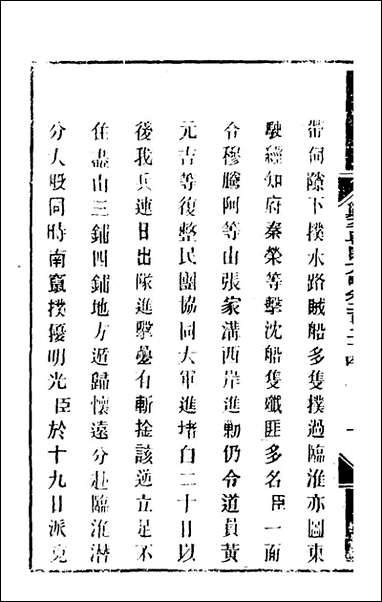 帶伺隙下撲水路賊船多隻撲過臨淮亦圖東
駛經知府秦榮等擊沈船隻殲匪多名臣一面
令穆騰阿等由張家溝西岸進勦仍令道員黃
元吉等復整民團協同大軍進堵自二十日以
後我兵連日出隊進擊疊有斬擒該逆立足不
住盡由三鋪四鋪地方遁歸懷遠分赴臨淮潛
分大股同時南竄撲擾明光臣於十九日派克